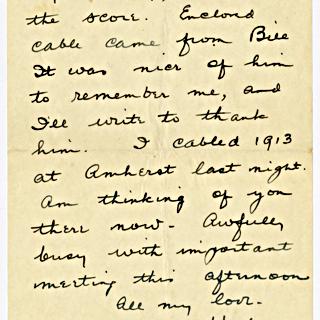 the score. Enclosed
cable came from Bill
It was nice of him
to remember me, and
I'll write to thank
him. I cabled 1913
at Amherst last night.
Am thinking of you
there now - Awfully
busy with important
meeting this afternoon
All my love.